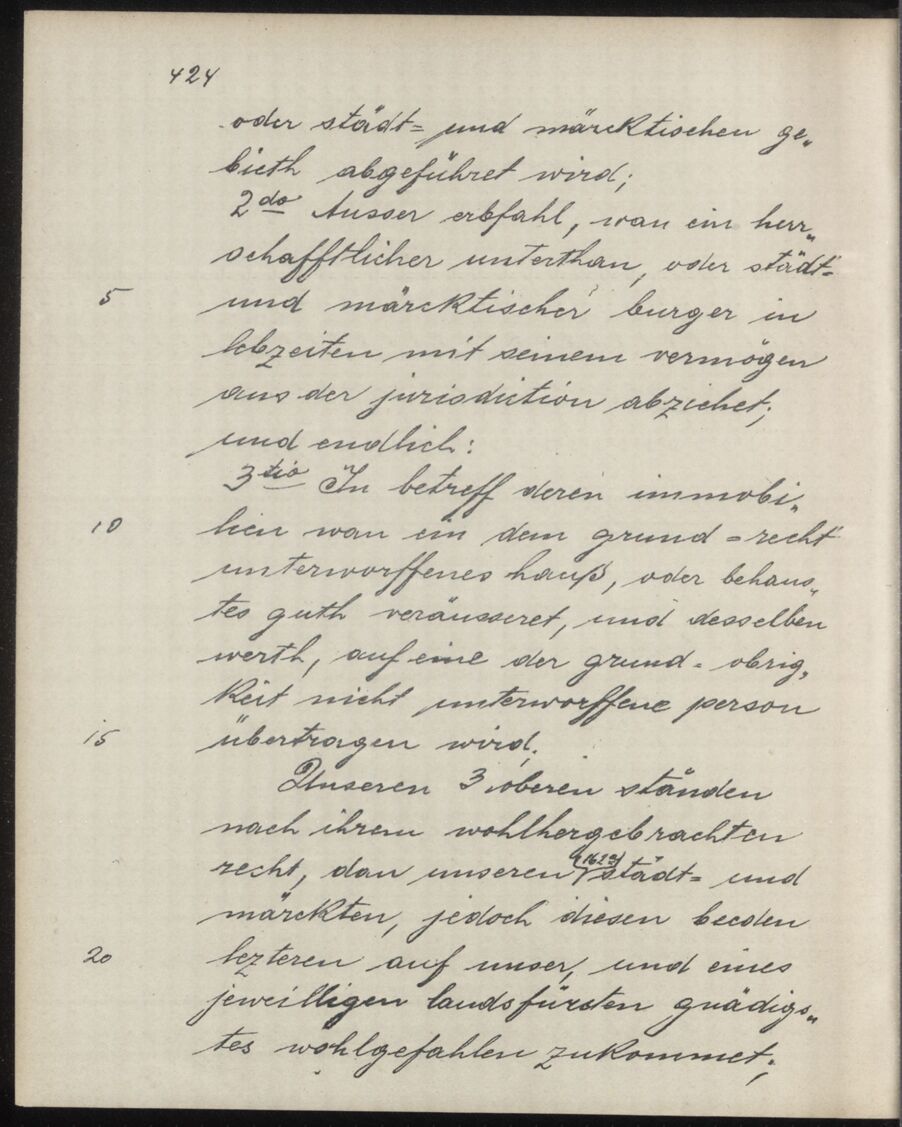 424
oder städt= und märcktischen ge„
bieth abgeführet wird;
2do Ausser erbfahl, wan ein herr„
schafftlicher unterthan, oder städt=
5 und märcktischer burger in
lebzeiten mit seinem vermögen
aus der jurisdiction abziehet;
und endlich:
3tio In betreff deren immobi„
10 lien wan ein dem grund=recht
unterworffenes hauß, oder behaus„
tes guth veräusseret, und desselben
werth, auf eine der grund=obrig„
keit nicht unterworffene person
15 übertragen wird;
Unseren 3 oberen ständen
nach ihrem wohlhergebrachten
recht, dan unseren (1629) städt= und
märckten, jedoch diesen beeden
20 lezteren auf unser, und eines
jeweilligen landsfürsten gnädigs„
tes wohlgefahlen zukommet;